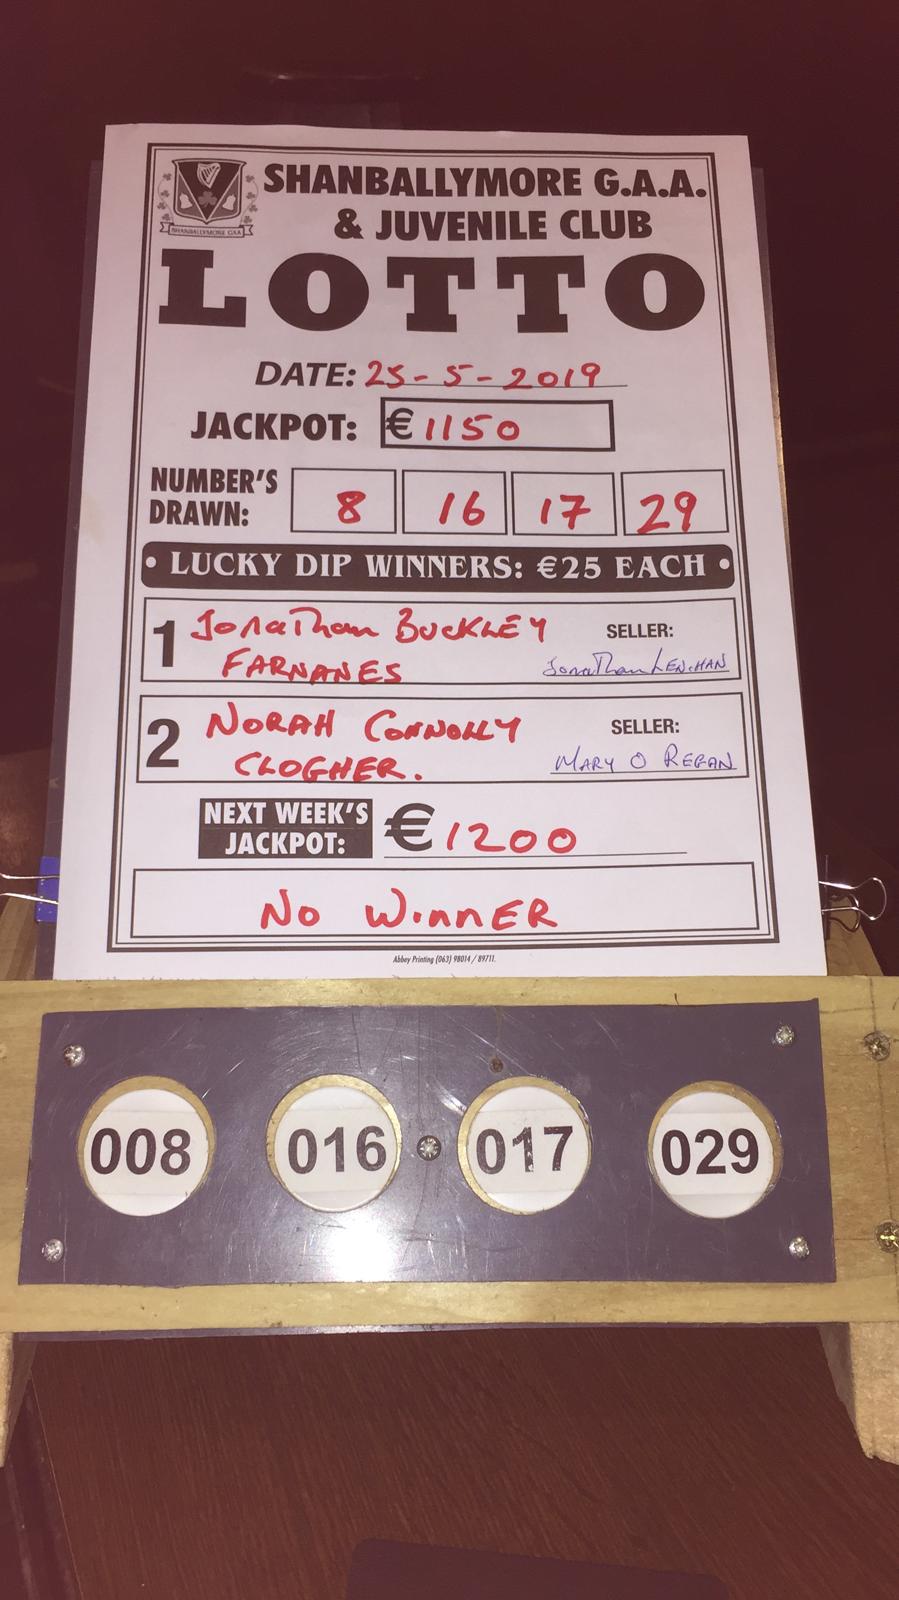 SHANBALLYMORE GAA
SHANBALLYMORE G.A.A.
& JUVENILE CLUB
LOTTO
DATE: 25-5-2019
JACKPOT: €1150
NUMBER'S
DRAWN: 8 16 17 29
• LUCKY DIP WINNERS: €25 EACH •
1 Jonathan BUCKLEY SELLER:
FARNANES Jonathan LENIHAN
2 NORAH CONNOLLY SELLER:
CLOGHER. MARY O REGAN
NEXT WEEK'S
JACKPOT: €1200
NO WINNER
Abbey Printing (063) 98014 / 89711.
008 016 017 029